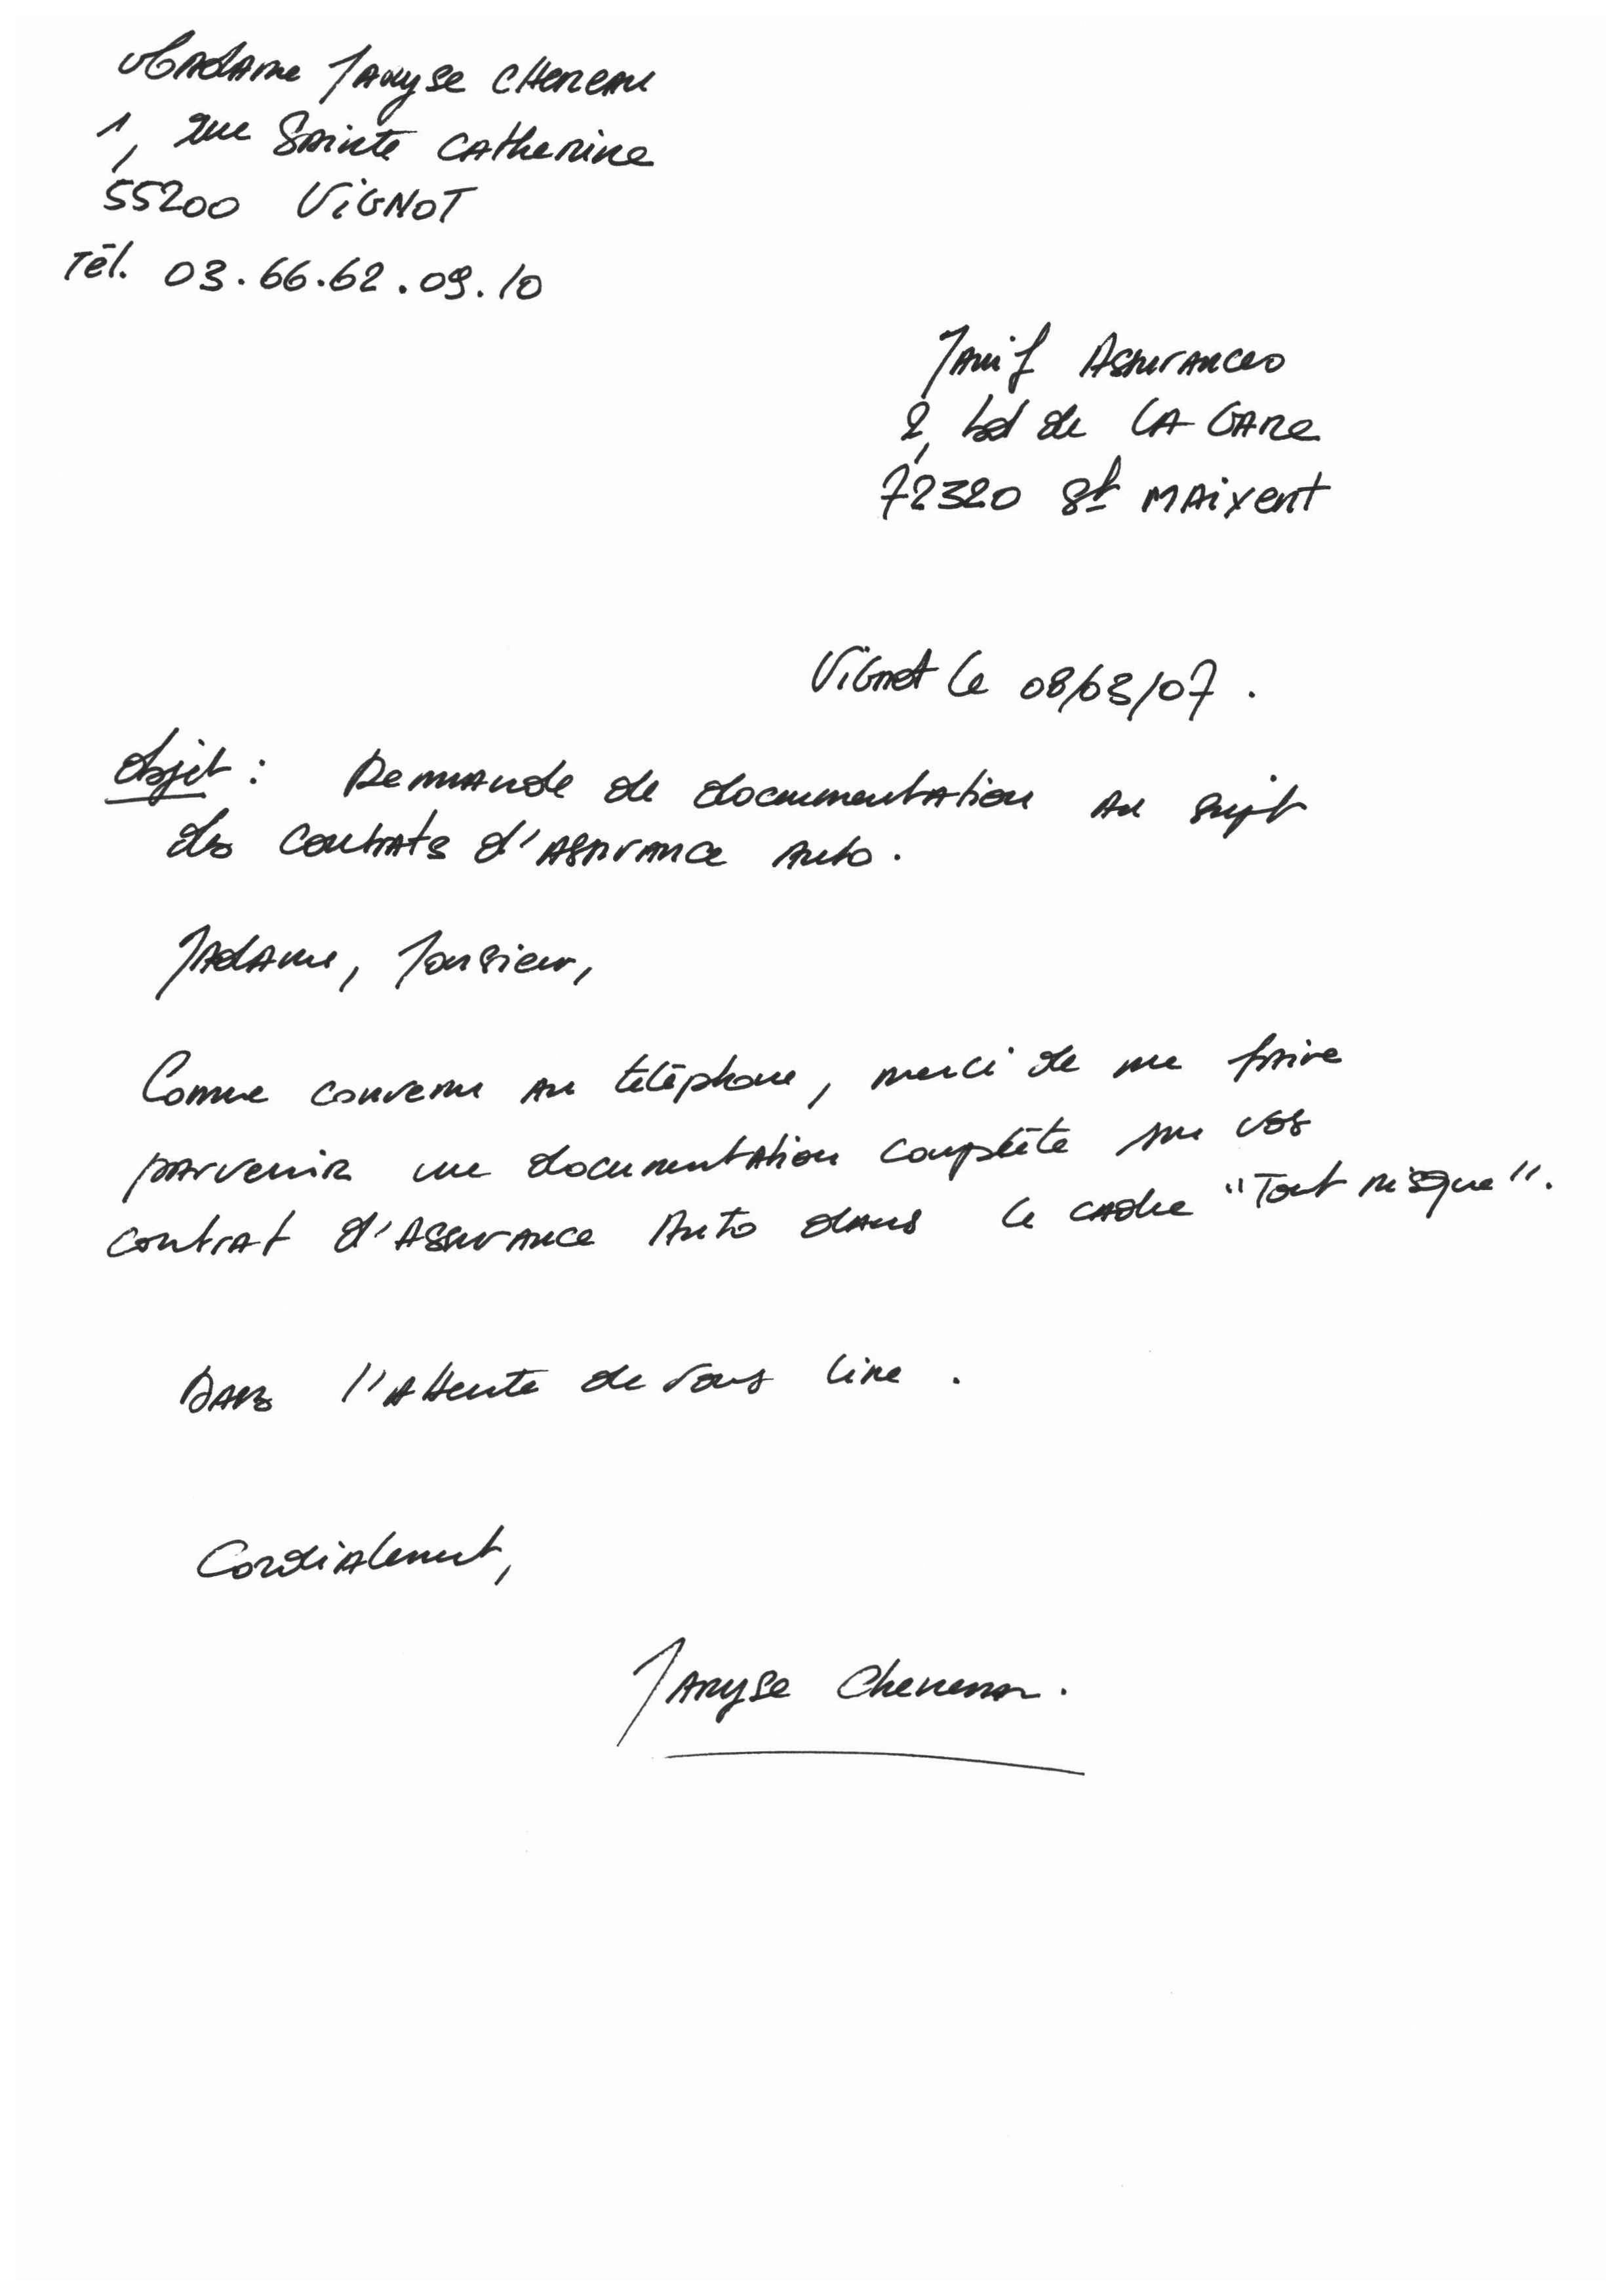 Madame Maryse CHENEAU
1, rue Sainte Catherine
55200 VIGNOT
Tél. 03.66.62.09.10
Maif Assurances
2, bd de LA GARE
72320 St MAixent
Vignot le 08/03/07.
Objet : Demande de documentation au sujet
des contrats d'assurance auto.
Madame, Monsieur,
Comme convenu au téléphone, merci de me faire
parvenir une documentation complète sur vos
contrat d'Assurance Auto dans le cadre "Tout risque".
Dans l'attente de vous lire.
Cordialement,
Maryse Cheneau.